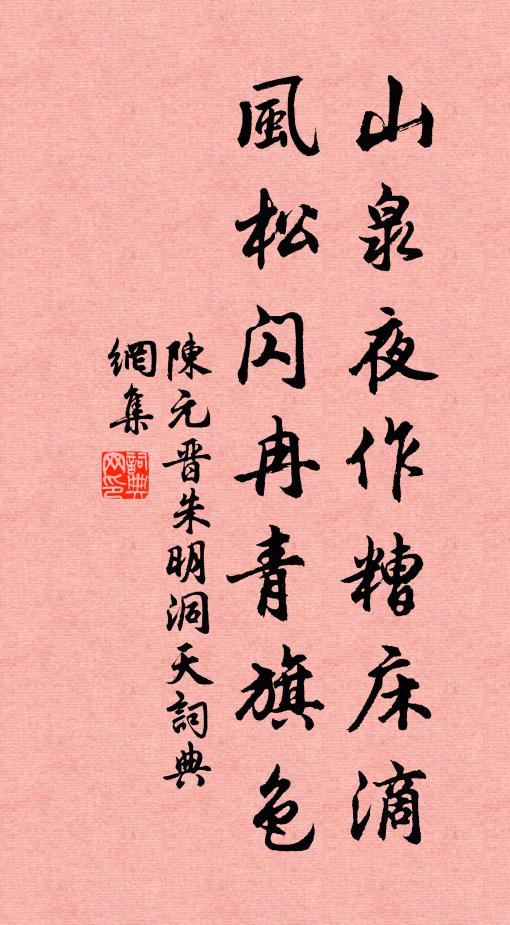 山泉夜作糟床滴
風松闪冉青旗色
陳元晋朱明洞天詞典
網集
詞典
网印